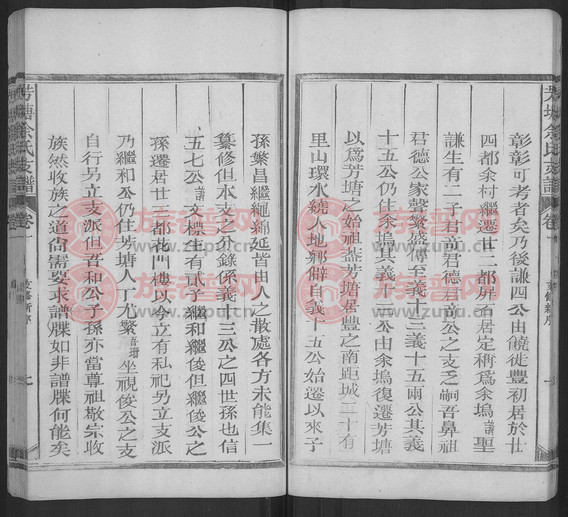 彰彰可考者矣乃後謙四公由饒徙豐初居於廿
四都余村繼遷廿二都屏右居定稱爲余塢議聖
謙生有二子君前君德君前公之支乏嗣吾鼻祖
君德公家聲繁衍傳至義十三義十五兩公其義
十五公仍住余塢其義十三公由余塢復遷芳塘
以爲芳塘之始祖葢芳塘居豐之南距城二十有
里山環水繞人地鄉僻自義十五公始遷以來子
孫繁昌繼繩綿延皆由人之散處各方未能集一
纂修但水支之亦錄係義十三公之四世孫也信
五七公諱文標生有貳子繼和繼俊但繼俊公之
孫遷居廿三都花門樓以今立有私祀另立支派
乃繼和公仍住芳塘人丁尤繁吾珊坐視俊公之支
自行另立支派但吾和公子孫亦當尊祖敬宗收
族然收族之道尚需要求譜牒如非譜牒何能矣
芳塘余氏宗譜 卷一
芳塘余氏宗譜 卷一
支修新序
支修新序
族譜网
www.zupu.cn
族譜网
www.zupu.cn